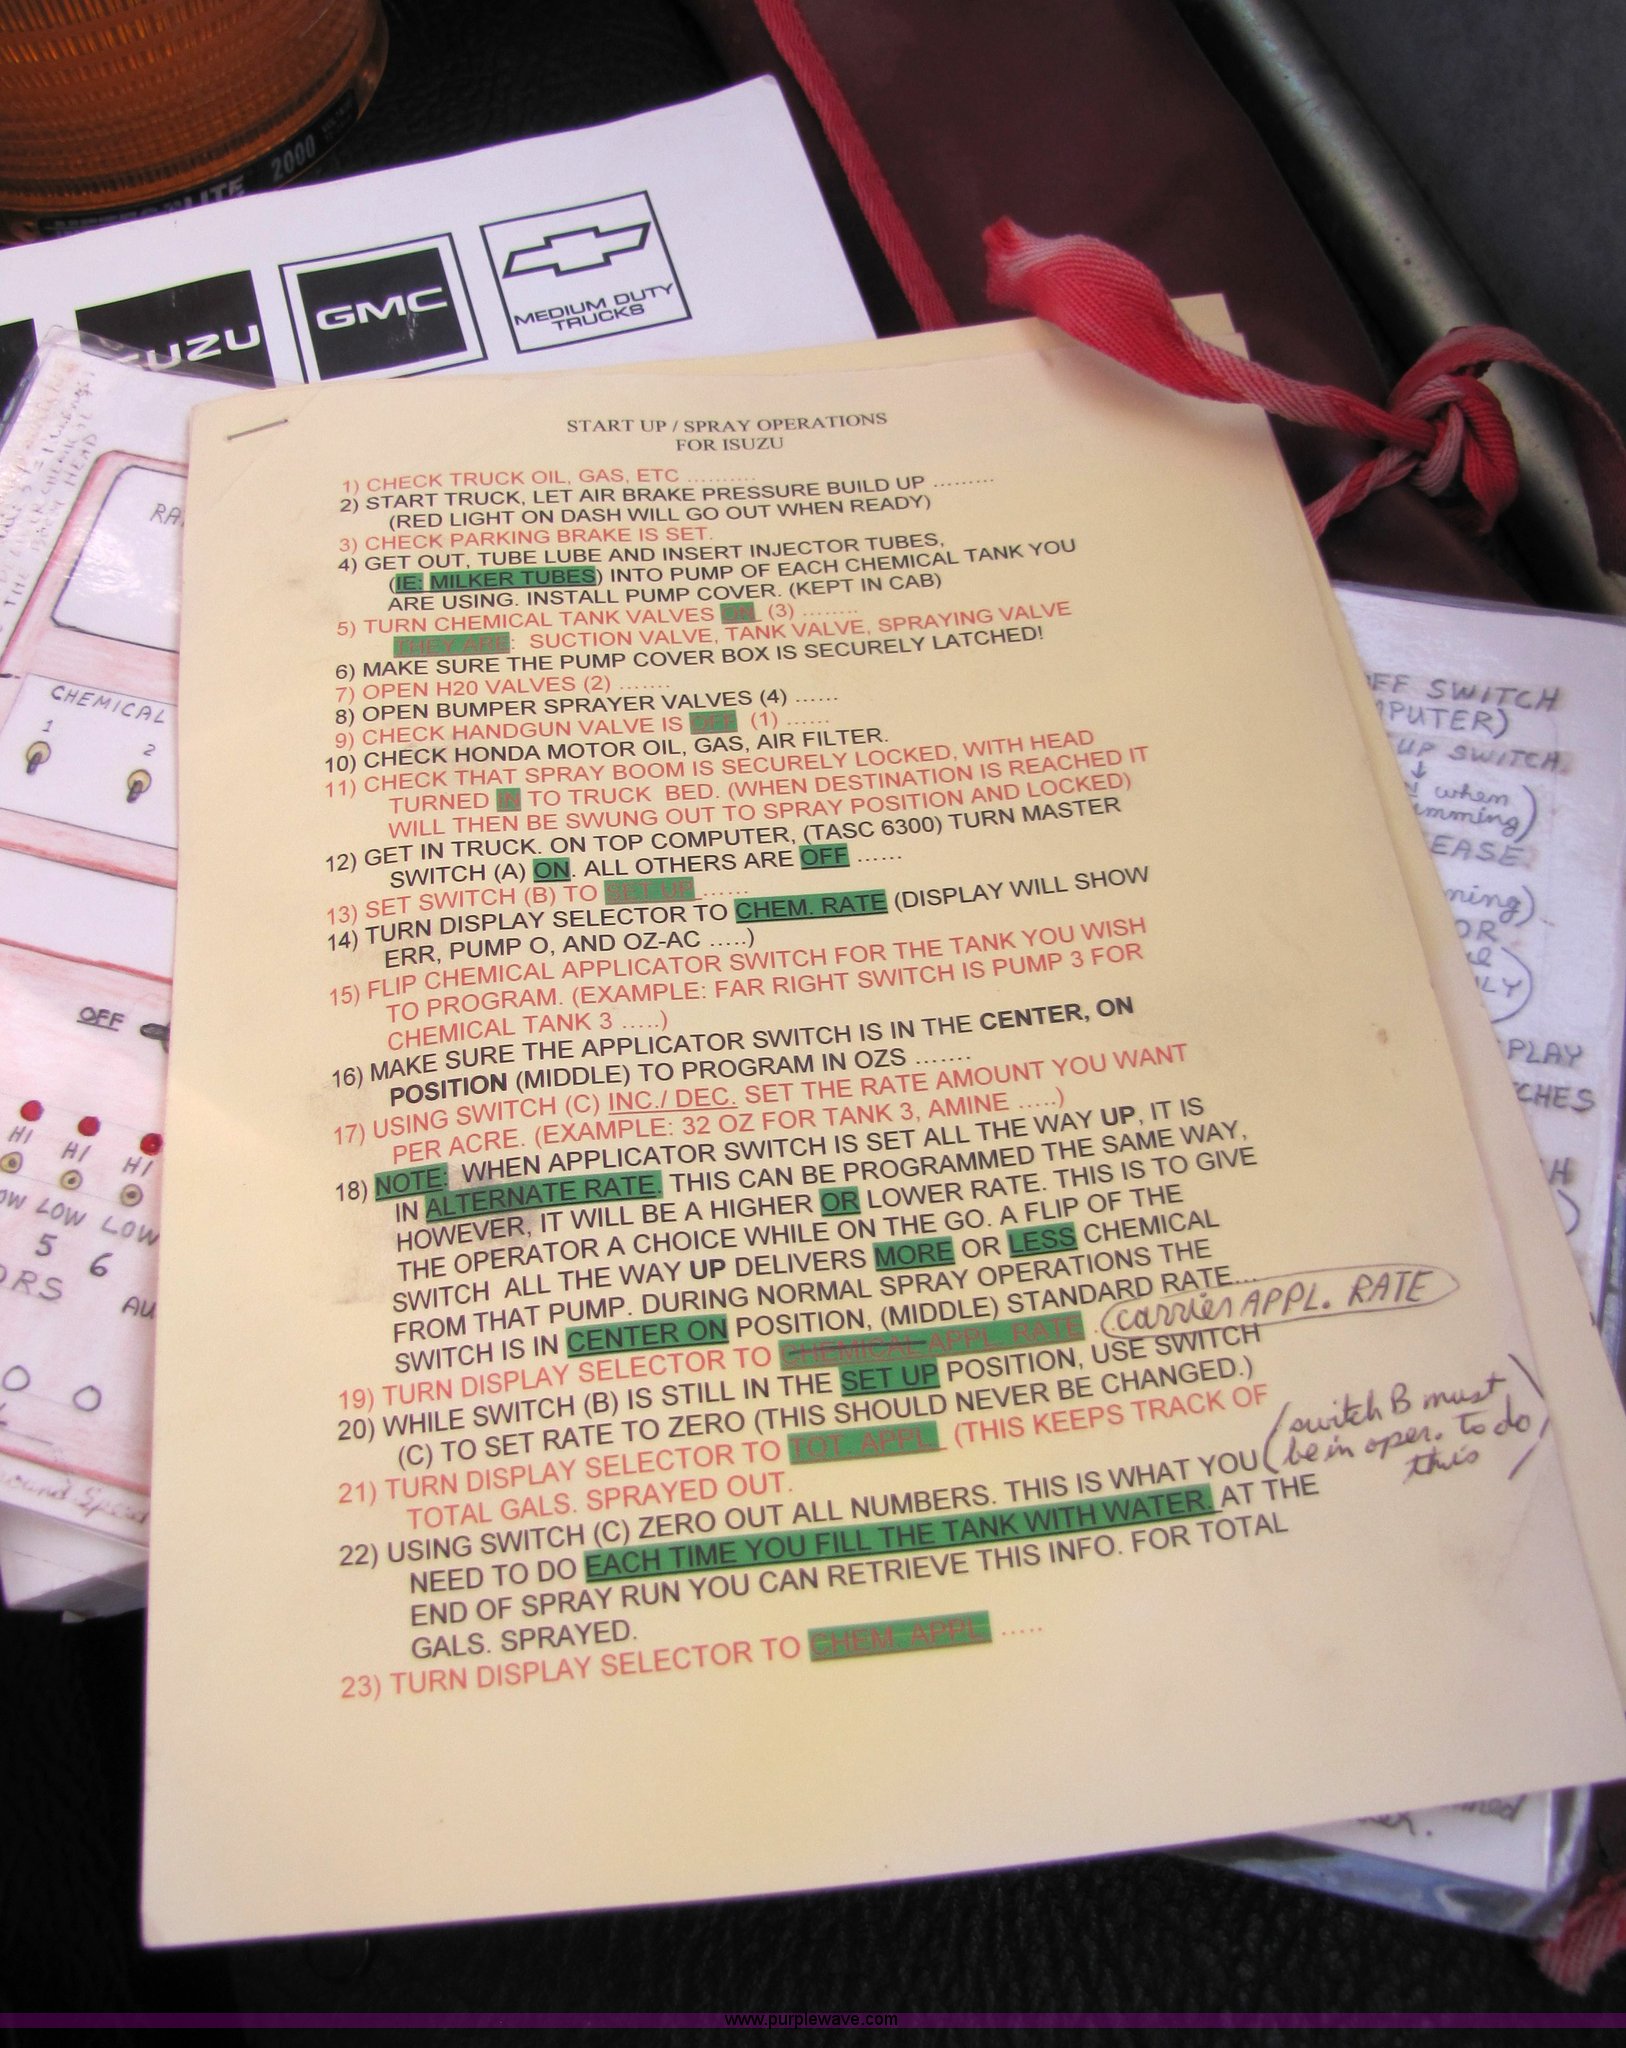 2000
ISUZU
GMC
MEDIUM DUTY
TRUCKS
START UP / SPRAY OPERATIONS
FOR ISUZU
1) CHECK TRUCK OIL, GAS, ETC ...........
2) START TRUCK, LET AIR BRAKE PRESSURE BUILD UP .........
(RED LIGHT ON DASH WILL GO OUT WHEN READY)
3) CHECK PARKING BRAKE IS SET.
4) GET OUT, TUBE LUBE AND INSERT INJECTOR TUBES,
(IE: MILKER TUBES) INTO PUMP OF EACH CHEMICAL TANK YOU
ARE USING. INSTALL PUMP COVER. (KEPT IN CAB)
5) TURN CHEMICAL TANK VALVES ON (3) ........
THEY ARE: SUCTION VALVE, TANK VALVE, SPRAYING VALVE
6) MAKE SURE THE PUMP COVER BOX IS SECURELY LATCHED!
7) OPEN H20 VALVES (2) .......
8) OPEN BUMPER SPRAYER VALVES (4) ......
9) CHECK HANDGUN VALVE IS OFF (1) ......
10) CHECK HONDA MOTOR OIL, GAS, AIR FILTER.
11) CHECK THAT SPRAY BOOM IS SECURELY LOCKED, WITH HEAD
TURNED IN TO TRUCK BED. (WHEN DESTINATION IS REACHED IT
WILL THEN BE SWUNG OUT TO SPRAY POSITION AND LOCKED)
12) GET IN TRUCK. ON TOP COMPUTER, (TASC 6300) TURN MASTER
SWITCH (A) ON. ALL OTHERS ARE OFF ......
13) SET SWITCH (B) TO SET UP ......
14) TURN DISPLAY SELECTOR TO CHEM. RATE (DISPLAY WILL SHOW
ERR, PUMP O, AND OZ-AC .....)
15) FLIP CHEMICAL APPLICATOR SWITCH FOR THE TANK YOU WISH
TO PROGRAM. (EXAMPLE: FAR RIGHT SWITCH IS PUMP 3 FOR
CHEMICAL TANK 3 .....)
16) MAKE SURE THE APPLICATOR SWITCH IS IN THE CENTER, ON
POSITION (MIDDLE) TO PROGRAM IN OZS .......
17) USING SWITCH (C) INC./ DEC. SET THE RATE AMOUNT YOU WANT
PER ACRE. (EXAMPLE: 32 OZ FOR TANK 3, AMINE .....)
18) NOTE: WHEN APPLICATOR SWITCH IS SET ALL THE WAY UP, IT IS
IN ALTERNATE RATE. THIS CAN BE PROGRAMMED THE SAME WAY,
HOWEVER, IT WILL BE A HIGHER OR LOWER RATE. THIS IS TO GIVE
THE OPERATOR A CHOICE WHILE ON THE GO. A FLIP OF THE
SWITCH ALL THE WAY UP DELIVERS MORE OR LESS CHEMICAL
FROM THAT PUMP. DURING NORMAL SPRAY OPERATIONS THE
SWITCH IS IN CENTER ON POSITION, (MIDDLE) STANDARD RATE...
19) TURN DISPLAY SELECTOR TO CHEMICAL APPL. RATE .. carrier APPL. RATE
20) WHILE SWITCH (B) IS STILL IN THE SET UP POSITION, USE SWITCH
(C) TO SET RATE TO ZERO (THIS SHOULD NEVER BE CHANGED.)
21) TURN DISPLAY SELECTOR TO TOT. APPL. (THIS KEEPS TRACK OF
TOTAL GALS. SPRAYED OUT.
(switch B must
be in oper. to do
this)
22) USING SWITCH (C) ZERO OUT ALL NUMBERS. THIS IS WHAT YOU
NEED TO DO EACH TIME YOU FILL THE TANK WITH WATER. AT THE
END OF SPRAY RUN YOU CAN RETRIEVE THIS INFO. FOR TOTAL
GALS. SPRAYED.
23) TURN DISPLAY SELECTOR TO CHEM. APPL. .....
HEAD
RA
CHEMICAL
1
2
OFF
HI HI HI
LOW LOW
5 6
ORS
AU
FF SWITCH
PUTER)
UP SWITCH
when
mming)
EASE
ning)
OR
LY)
PLAY
CHES
H
www.purplewave.com